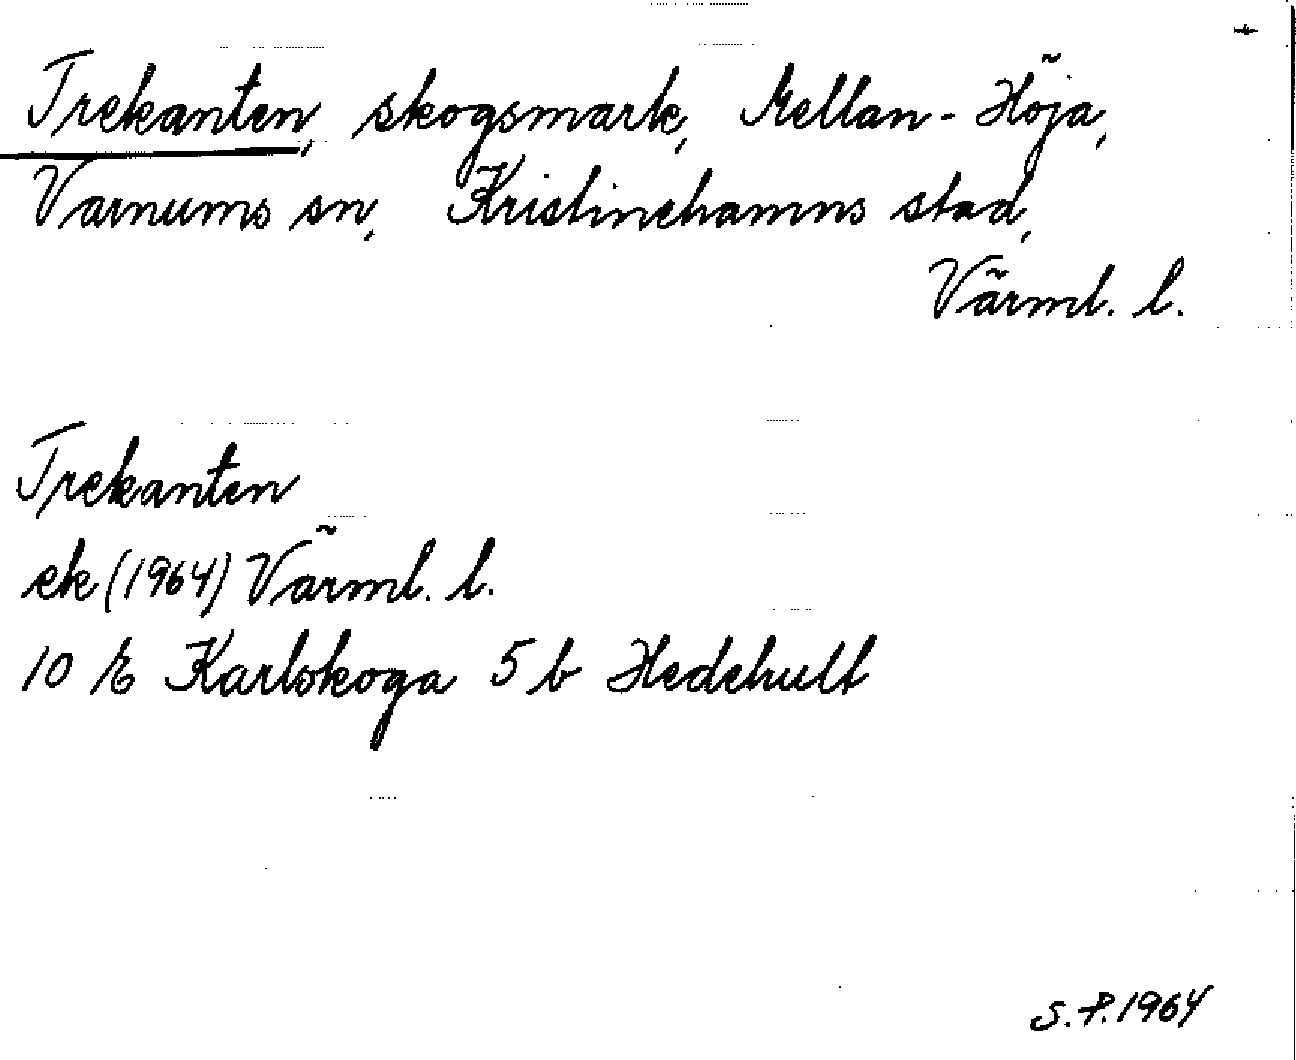 Trekanten, skogsmark, Mellan-Höja,
Varnums sn, Kristinehamns stad,
Värml. l.
Trekanten
ek (1964) Värml. l.
10 E Karlskoga 5 b Hedehult
S.P. 1964